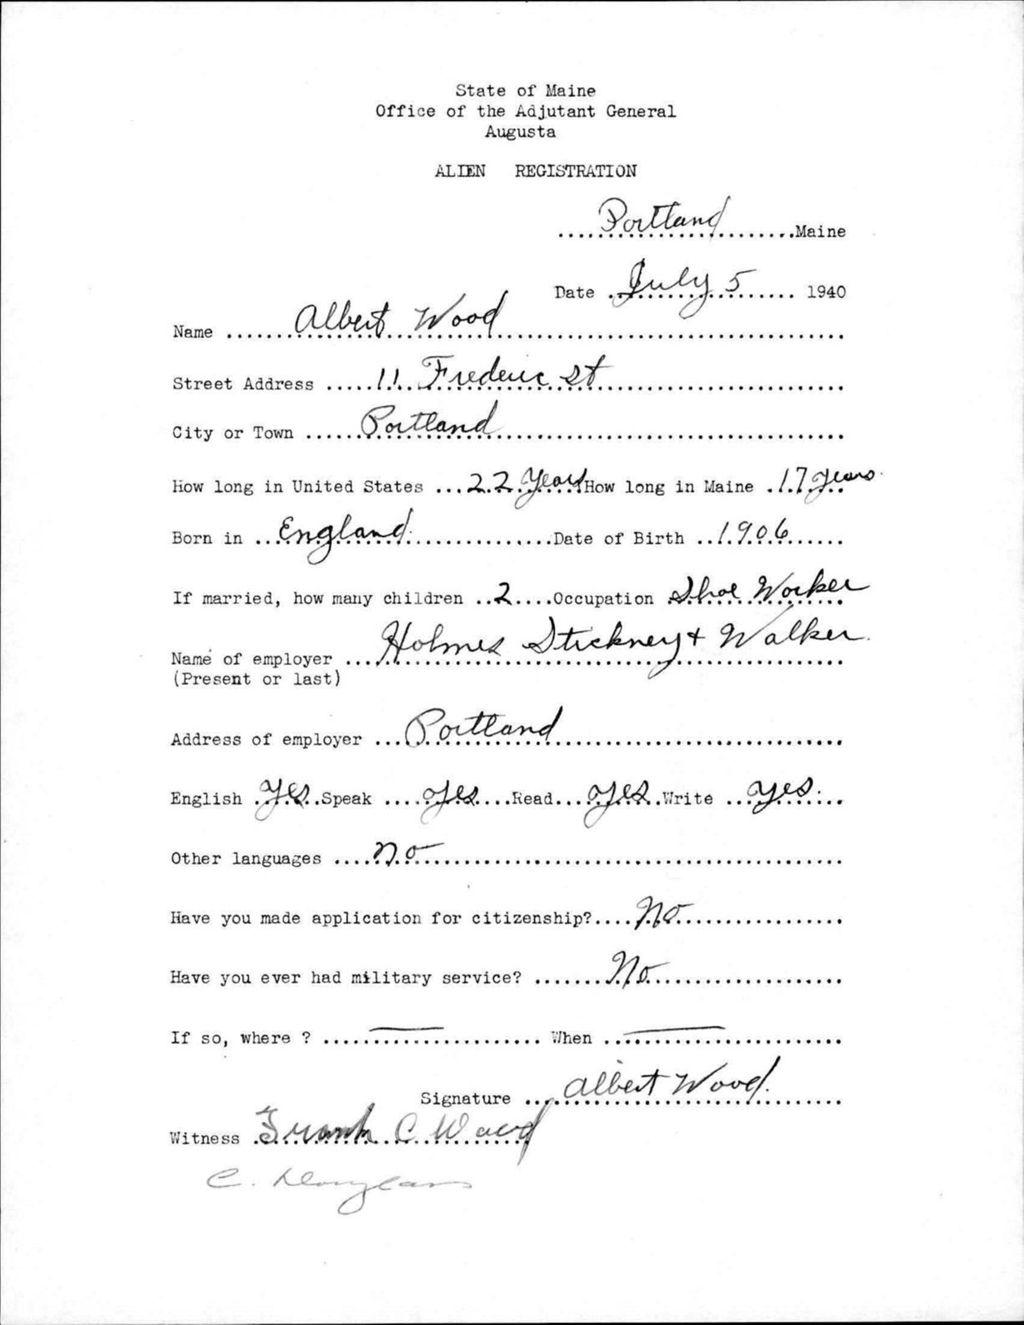 State of Maine
Office of the Adjutant General
Augusta
ALIEN REGISTRATION
Portland Maine
Date July 5 1940
Name Albert Wood
Street Address 11 Frederic St
City or Town Portland
How long in United States 22 Years How long in Maine 17 years
Born in England Date of Birth 1906
If married, how many children 2 Occupation Shoe Worker
Name of employer Holmes Stickney + Walker
(Present or last)
Address of employer Portland
English Yes Speak yes Read yes Write yes
Other languages no
Have you made application for citizenship? No
Have you ever had military service? No
If so, where ? — When —
Signature Albert Wood.
Witness Frank C Wood
C. Douglass